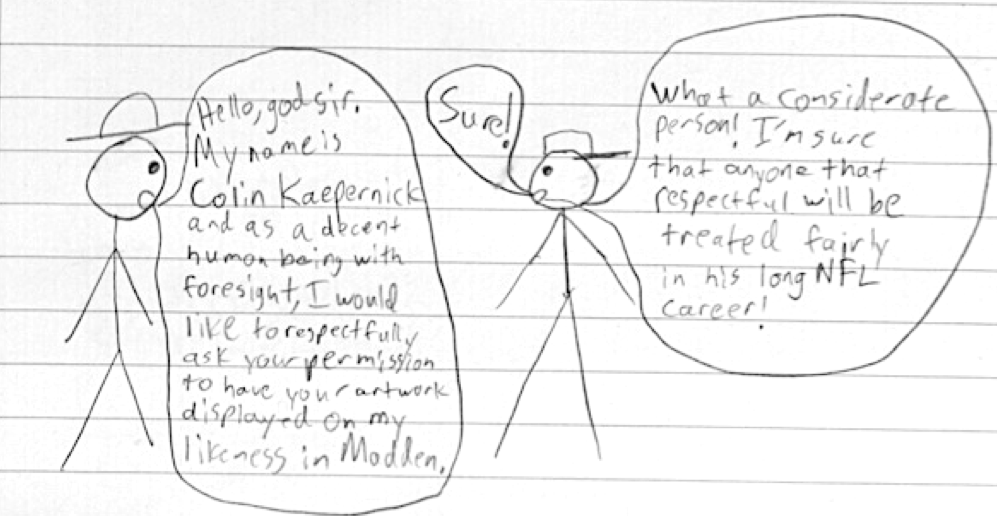 Hello, god sir.
My name is
Colin Kaepernick
and as a decent
human being with
foresight, I would
like to respectfully
ask your permission
to have your artwork
displayed on my
likeness in Madden.
Sure!
What a considerate
person! I'm sure
that anyone that
respectful will be
treated fairly
in his long NFL
career!